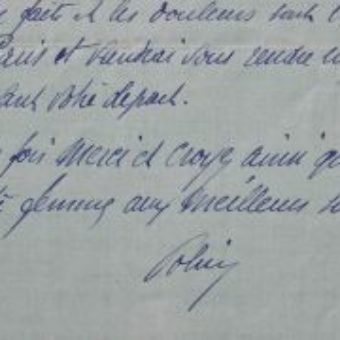 faite et les douleurs sont
Paris et viendrai vous rendre
avant votre départ.
fois merci et croyez ainsi
femme aux meilleurs